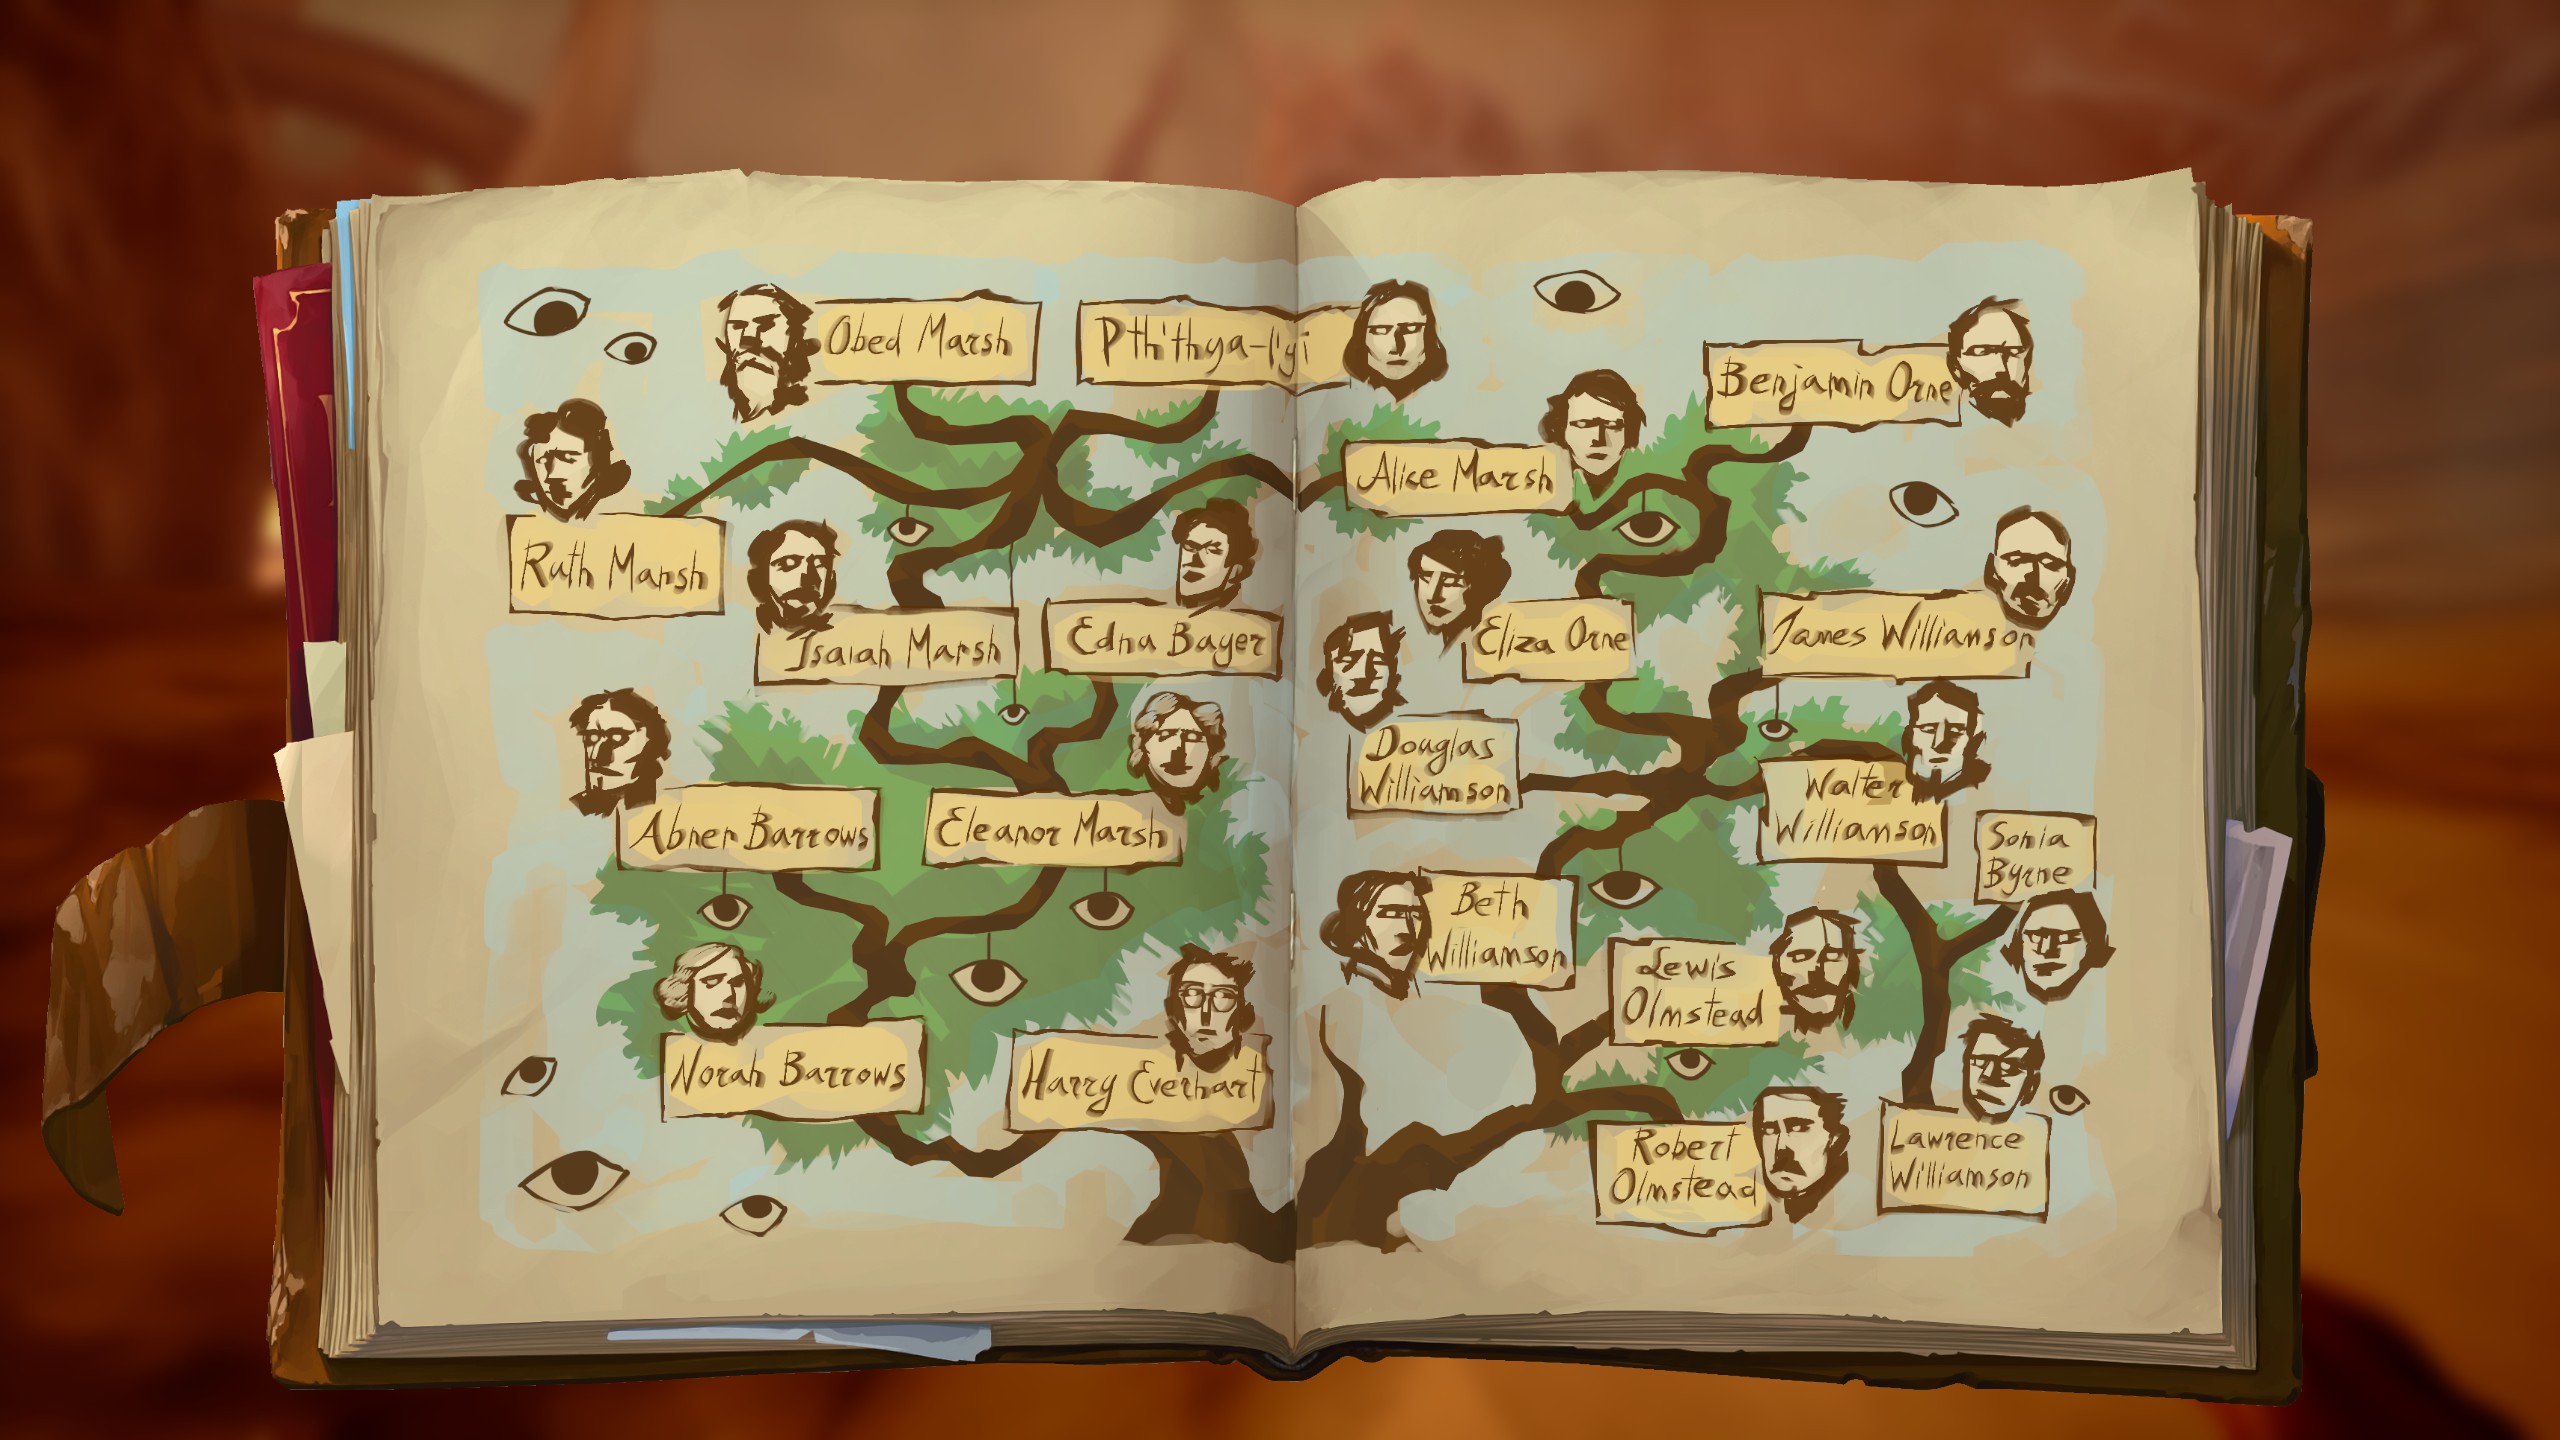 Obed Marsh
Pth'thya-l'yi
Benjamin Orne
Alice Marsh
Ruth Marsh
Isaiah Marsh
Edna Bayer
Eliza Orne
James Williamson
Douglas
Williamson
Walter
Williamson
Abner Barrows
Eleanor Marsh
Sonia
Byrne
Beth
Williamson
Lewis
Olmstead
Norah Barrows
Harry Everhart
Robert
Olmstead
Lawrence
Williamson